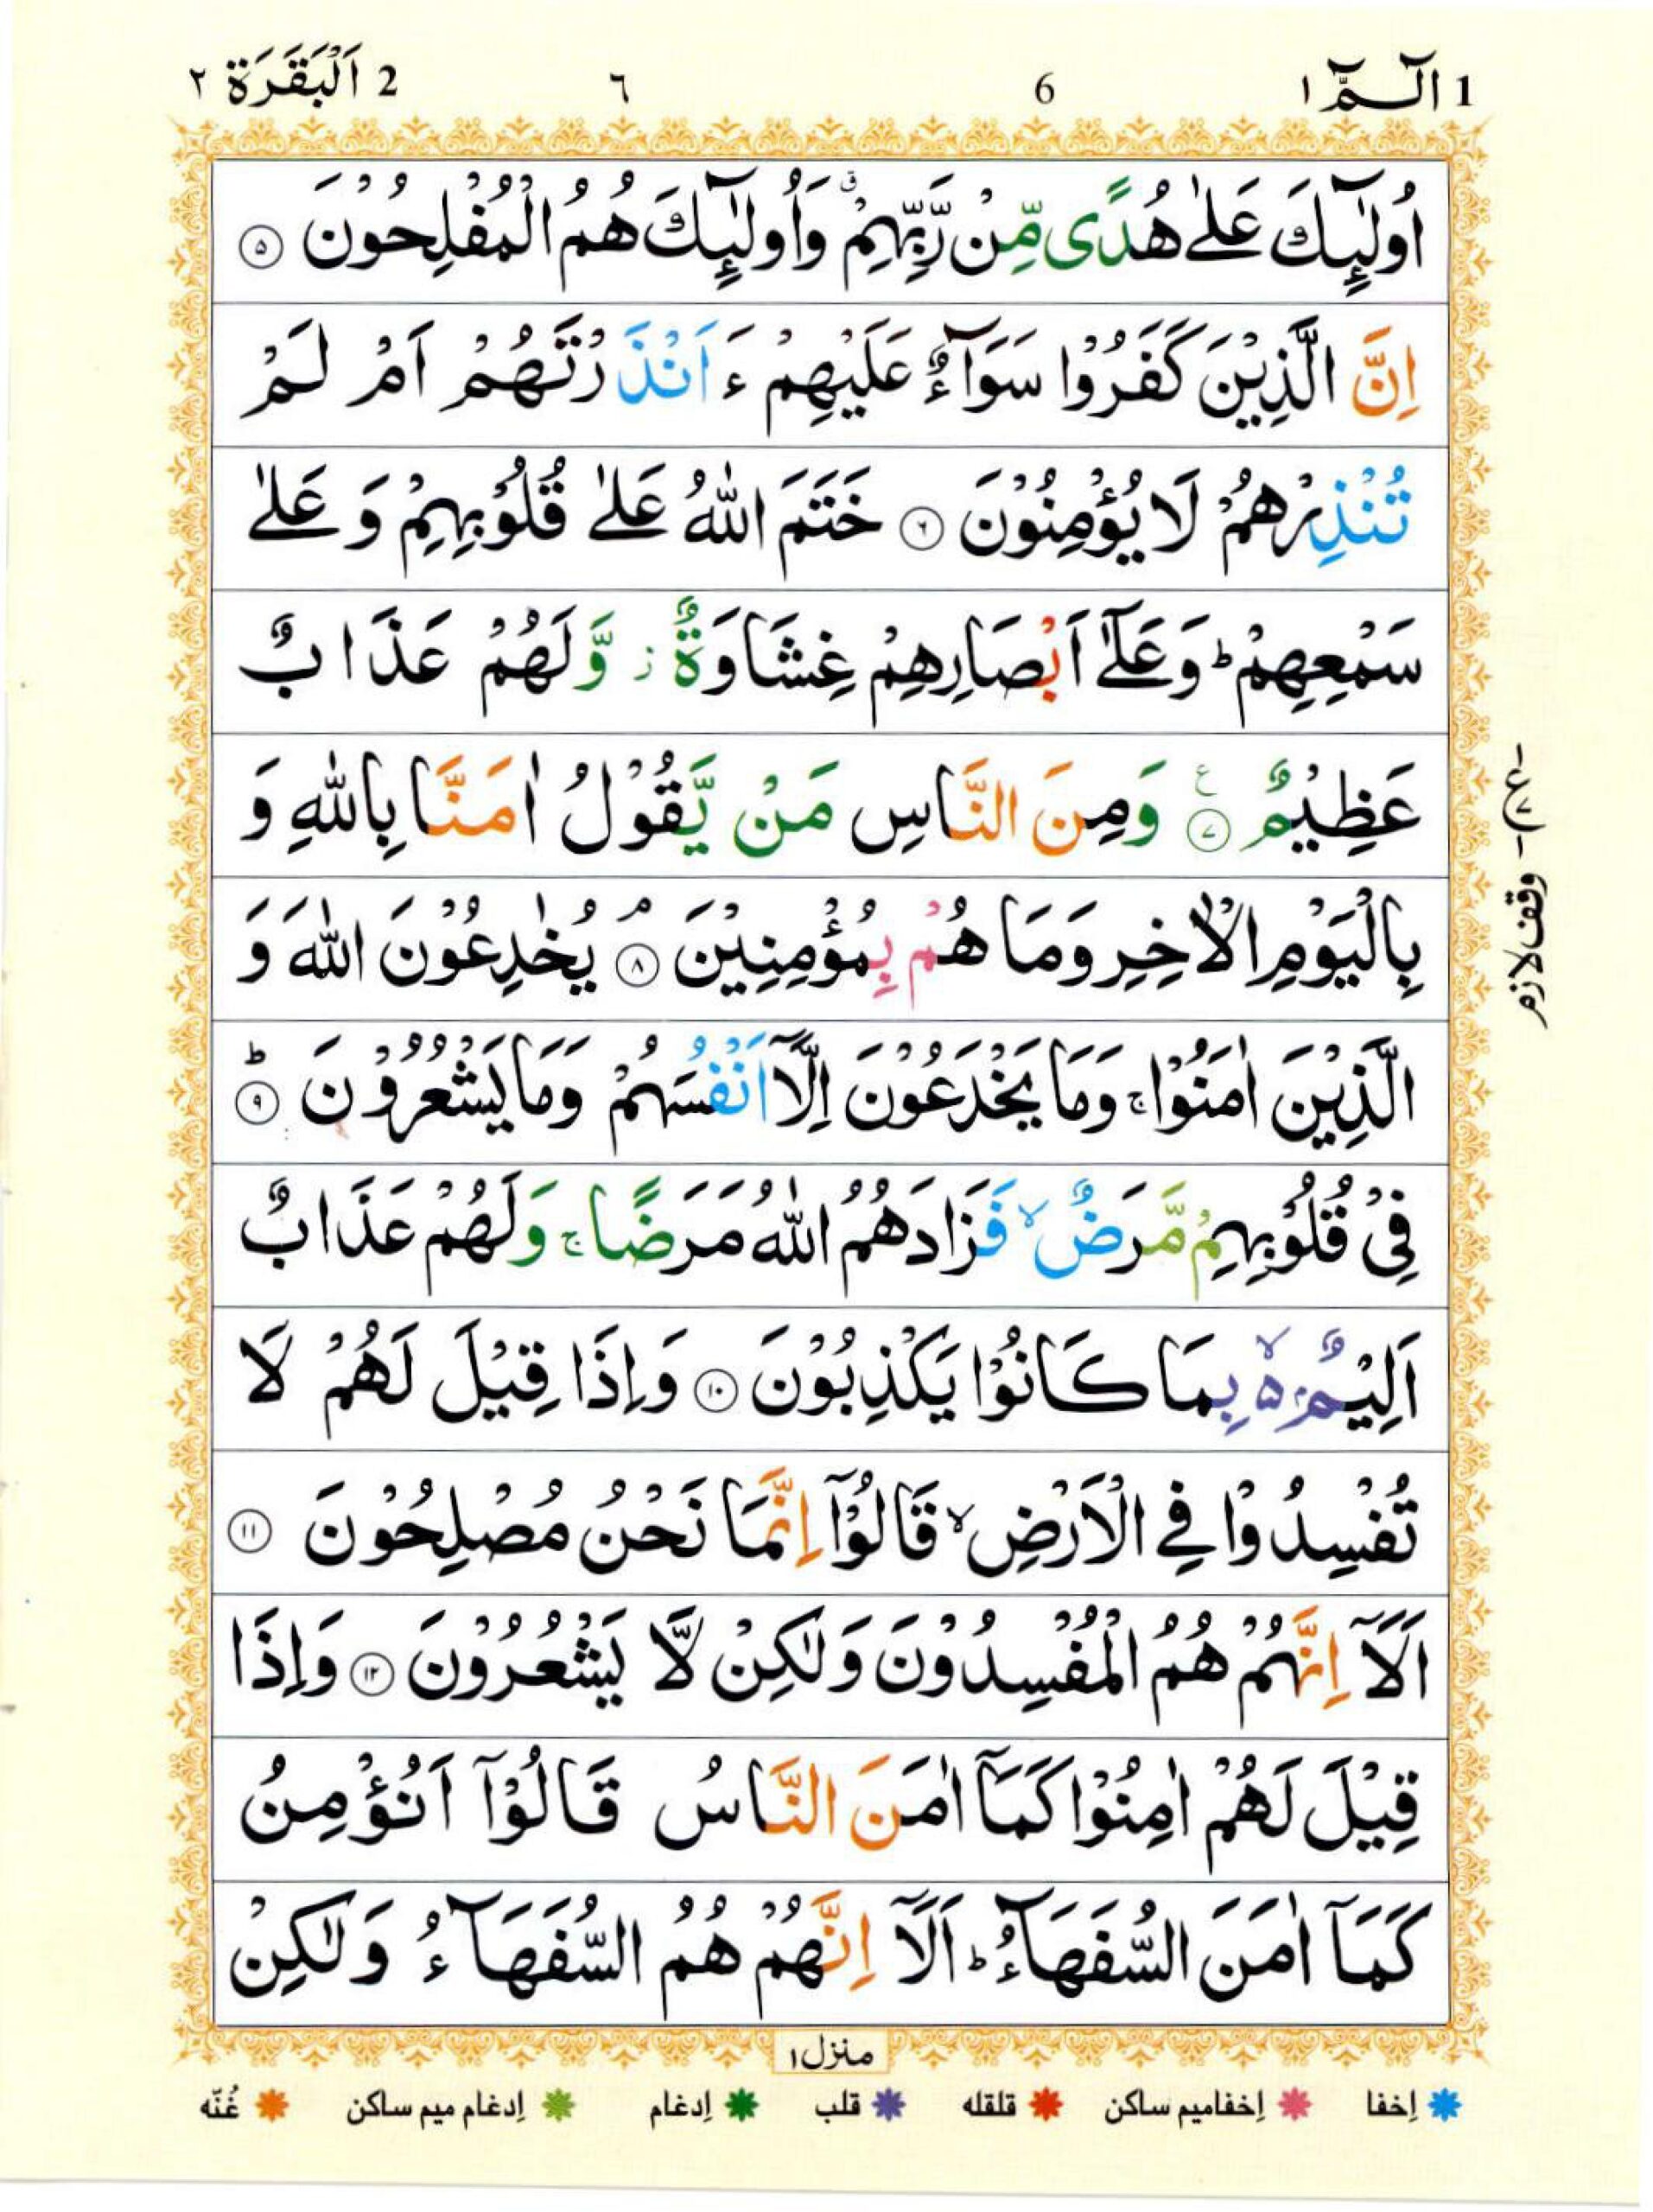 1 الٓـمّٓ ١ 6 ٦ 2 اَلْبَقَرَة ٢
اُولٰٓئِكَ عَلٰى هُدًى مِّنْ رَّبِّهِمْ ۗ وَاُولٰٓئِكَ هُمُ الْمُفْلِحُوْنَ ۝٥
اِنَّ الَّذِيْنَ كَفَرُوْا سَوَآءٌ عَلَيْهِمْ ءَاَنْذَرْتَهُمْ اَمْ لَمْ
تُنْذِرْهُمْ لَا يُؤْمِنُوْنَ ۝٦ خَتَمَ اللّٰهُ عَلٰى قُلُوْبِهِمْ وَ عَلٰى
سَمْعِهِمْ ؕ وَعَلٰٓى اَبْصَارِهِمْ غِشَاوَةٌ ز وَّلَهُمْ عَذَابٌ
عَظِيْمٌ ۝٧ ع وَمِنَ النَّاسِ مَنْ يَّقُوْلُ اٰمَنَّا بِاللّٰهِ وَ
بِالْيَوْمِ الْاٰخِرِ وَمَا هُمْ بِمُؤْمِنِيْنَ ۝٨ۘ يُخٰدِعُوْنَ اللّٰهَ وَ
الَّذِيْنَ اٰمَنُوْا ۚ وَمَا يَخْدَعُوْنَ اِلَّآ اَنْفُسَهُمْ وَمَا يَشْعُرُوْنَ ۝٩ؕ
فِىْ قُلُوْبِهِمْ مَّرَضٌ ۙ فَزَادَهُمُ اللّٰهُ مَرَضًا ۚ وَلَهُمْ عَذَابٌ
اَلِيْمٌۢ ۵ۙ بِمَا كَانُوْا يَكْذِبُوْنَ ۝١٠ وَاِذَا قِيْلَ لَهُمْ لَا
تُفْسِدُوْا فِى الْاَرْضِ ۙ قَالُوْٓا اِنَّمَا نَحْنُ مُصْلِحُوْنَ ۝١١
اَلَآ اِنَّهُمْ هُمُ الْمُفْسِدُوْنَ وَلٰكِنْ لَّا يَشْعُرُوْنَ ۝١٢ وَاِذَا
قِيْلَ لَهُمْ اٰمِنُوْا كَمَآ اٰمَنَ النَّاسُ قَالُوْٓا اَنُؤْمِنُ
كَمَآ اٰمَنَ السُّفَهَآءُ ؕ اَلَآ اِنَّهُمْ هُمُ السُّفَهَآءُ وَلٰكِنْ
وقف لازم
منزل ١
إخفا إخفاميم ساكن قلقله قلب إدغام إدغام ميم ساكن غُنّه